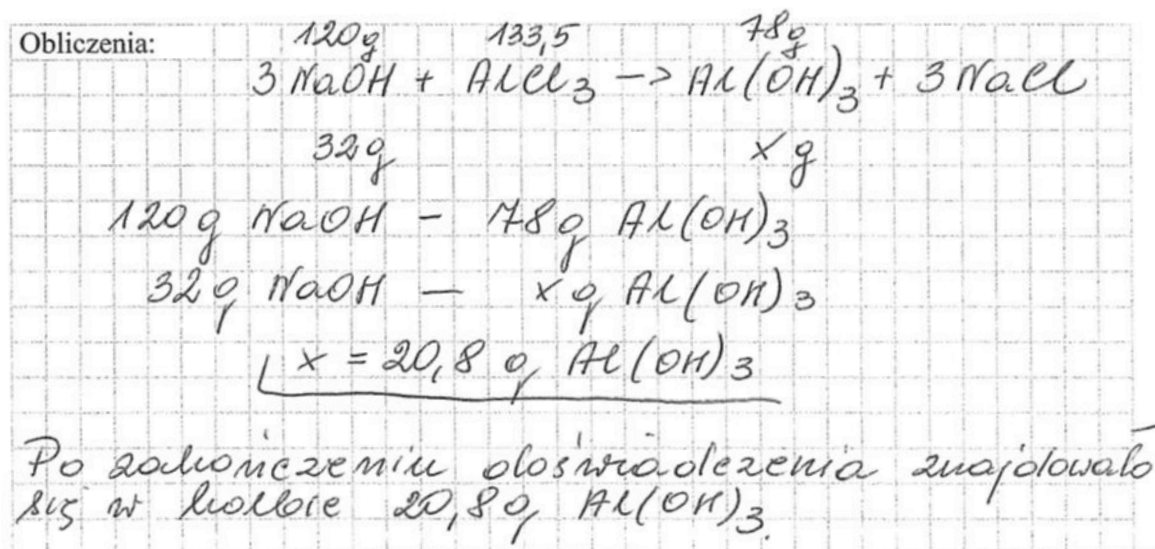 Obliczenia:
120g 133,5 78g
3 NaOH + AlCl3 -> Al(OH)3 + 3 NaCl
32g x g
120g NaOH - 78g Al(OH)3
32g NaOH - x g Al(OH)3
x = 20,8 g Al(OH)3
Po zakończeniu doświadczenia znajdowało
się w kolbie 20,8g Al(OH)3.